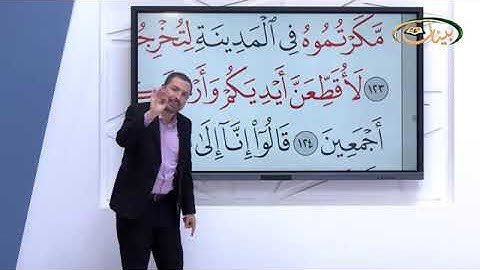 مَّكَرْتُمُوهُ فِى ٱلْمَدِينَةِ لِتُخْرِجُ
١٢٣ لَأُقَطِّعَنَّ أَيْدِيَكُمْ وَأَرْ
أَجْمَعِينَ ١٢٤ قَالُوٓا۟ إِنَّآ إِلَىٰ
بينات